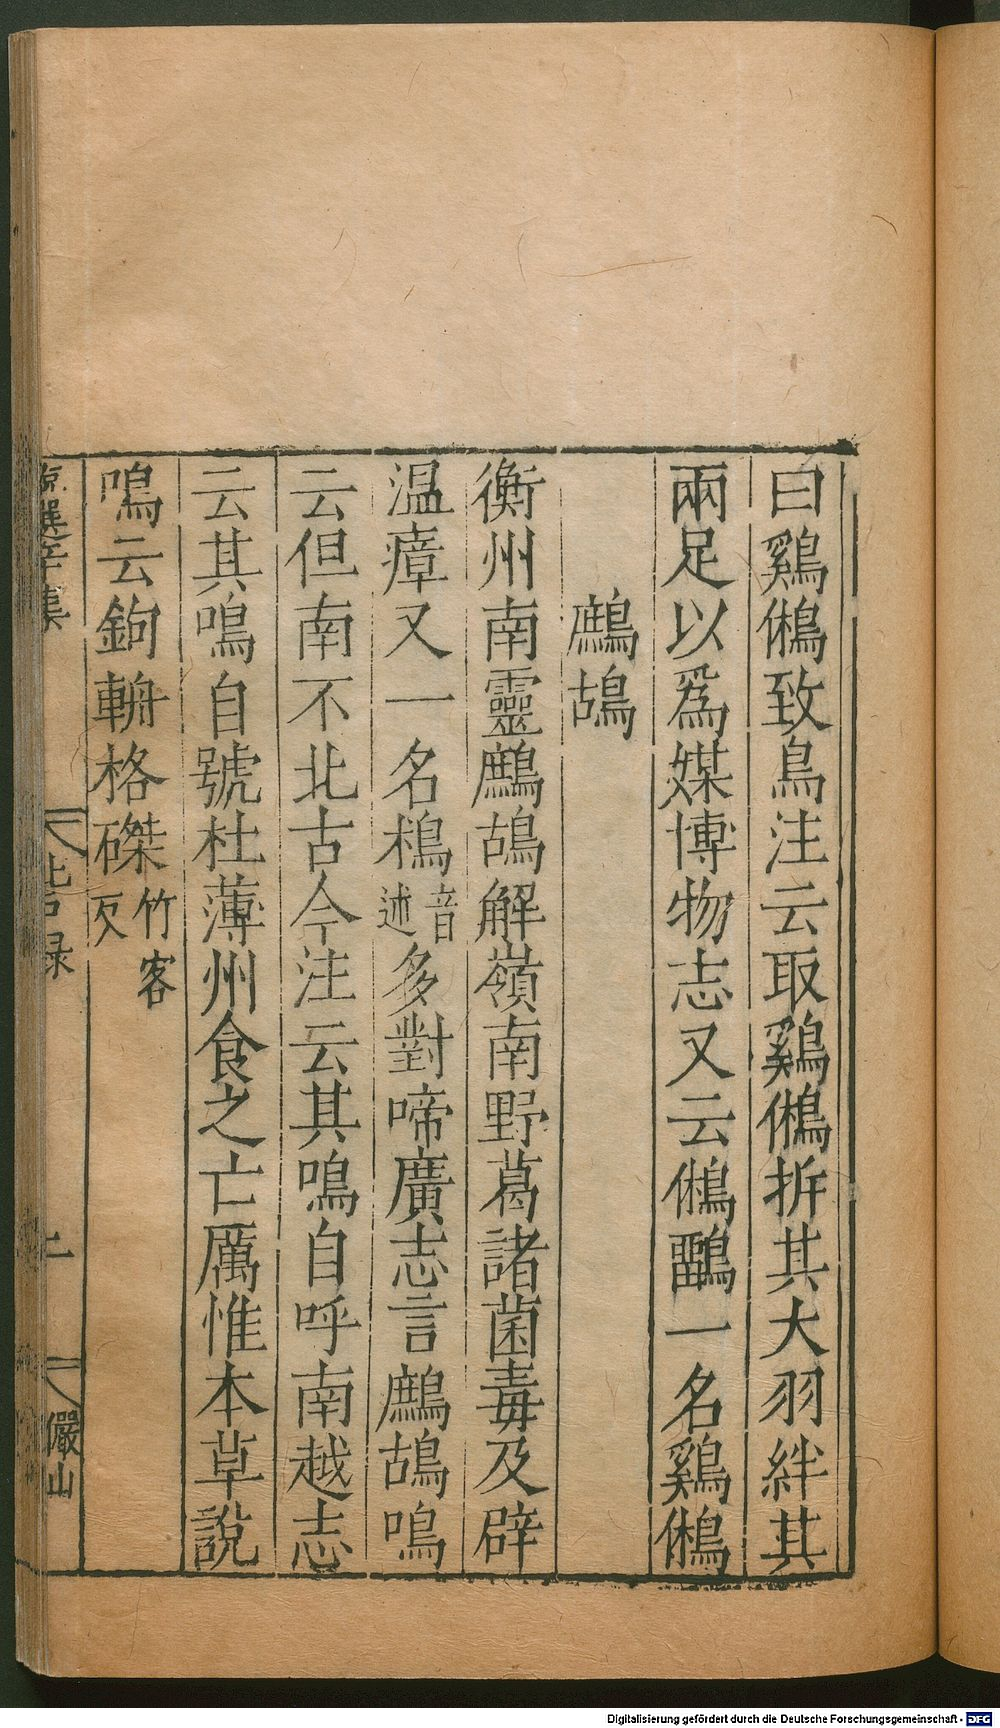 曰鷄鵂致鳥注云取鷄鵂折其大羽絆其
兩足以爲媒博物志又云鵂鶹一名鷄鵂
鷓鴣
衡州南靈鷓鴣解嶺南野葛諸菌毒及辟
温瘴又一名鵗音述多對啼廣志言鷓鴣鳴
云但南不北古今注云其鳴自呼南越志
云其鳴自號杜薄州食之亡厲惟本草說
鳴云鉤輈格磔竹客反
選 集
録
儼山
Digitalisierung gefördert durch die Deutsche Forschungsgemeinschaft - DFG